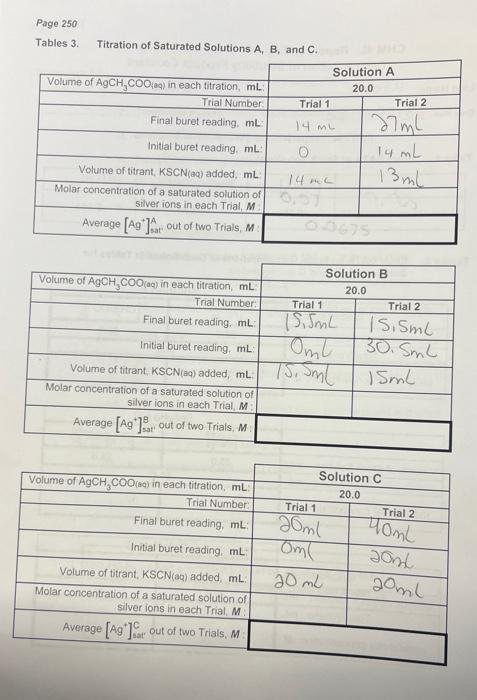 Page 250
Tables 3. Titration of Saturated Solutions A, B, and C.
Solution A
Volume of AgCH3COO(aq) in each titration, mL: 20.0
Trial Number: Trial 1 Trial 2
Final buret reading, mL: 14 mL 27ml
Initial buret reading, mL: 0 14 mL
Volume of titrant, KSCN(aq) added, mL: 14 mL 13ml
Molar concentration of a saturated solution of
silver ions in each Trial, M: 0.07
Average [Ag+]A sat' out of two Trials, M: 0.0675
Solution B
Volume of AgCH3COO(aq) in each titration, mL: 20.0
Trial Number: Trial 1 Trial 2
Final buret reading, mL: 15.5mL 15.5mL
Initial buret reading, mL: 0mL 30.5mL
Volume of titrant, KSCN(aq) added, mL: 15.5ml 15ml
Molar concentration of a saturated solution of
silver ions in each Trial, M:
Average [Ag+]B sat' out of two Trials, M:
Solution C
Volume of AgCH3COO(aq) in each titration, mL: 20.0
Trial Number: Trial 1 Trial 2
Final buret reading, mL: 20ml 40ml
Initial buret reading, mL: 0ml 20ml
Volume of titrant, KSCN(aq) added, mL: 20 ml 20ml
Molar concentration of a saturated solution of
silver ions in each Trial, M:
Average [Ag+]C sat' out of two Trials, M: